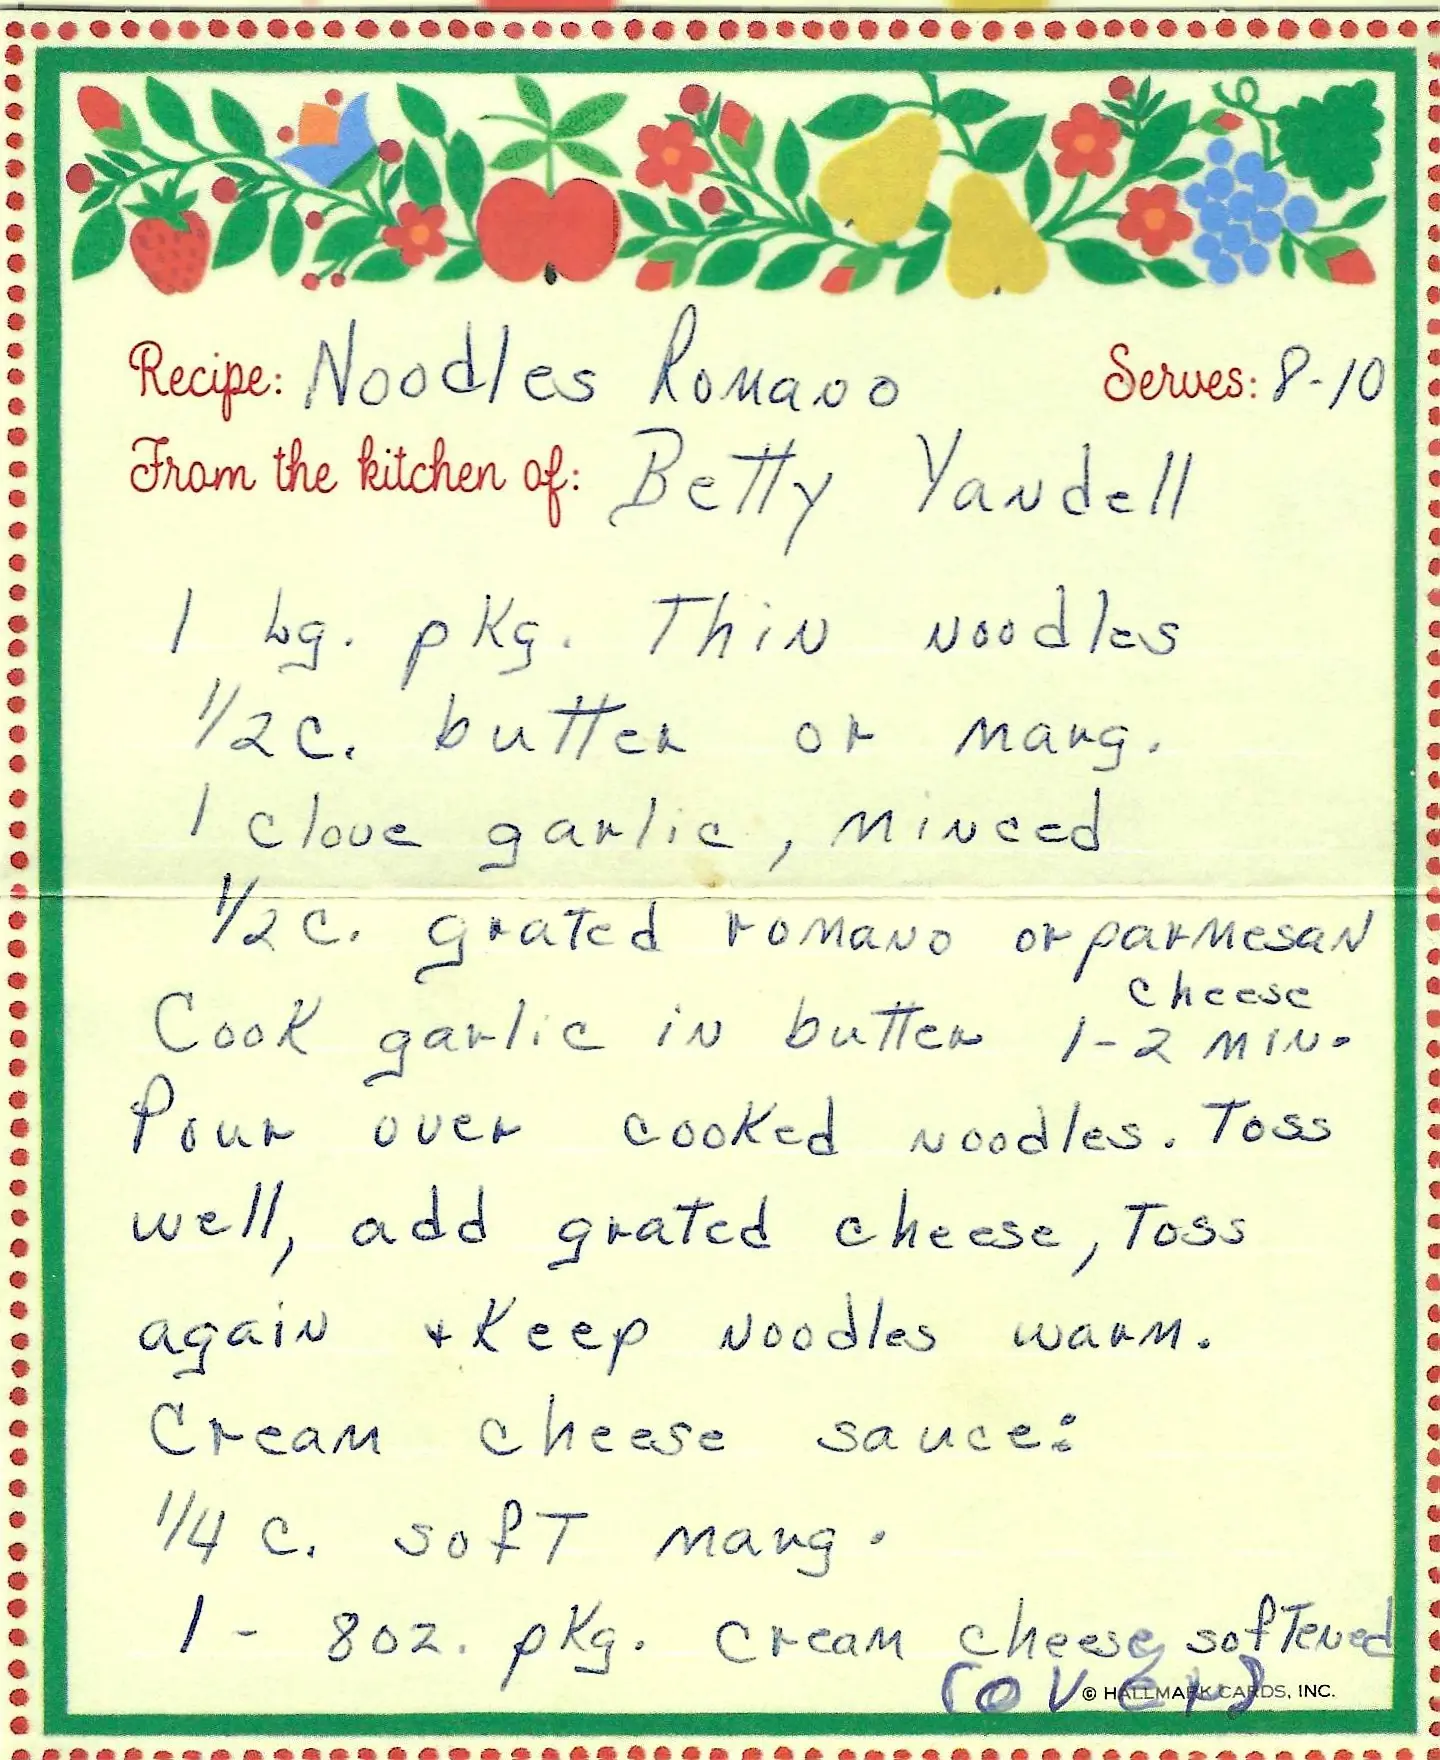 Recipe: Noodles Romano Serves: 8-10
From the kitchen of: Betty Yandell
1 Lg. pkg. Thin noodles
1/2 c. butter or marg.
1 clove garlic, minced
1/2 c. grated romano or parmesan
cheese
Cook garlic in butter 1-2 min.
Pour over cooked noodles. Toss
well, add grated cheese, Toss
again + Keep noodles warm.
Cream cheese sauce:
1/4 c. soft marg.
1 - 8 oz. pkg. cream cheese, softened
(over)
© HALLMARK CARDS, INC.